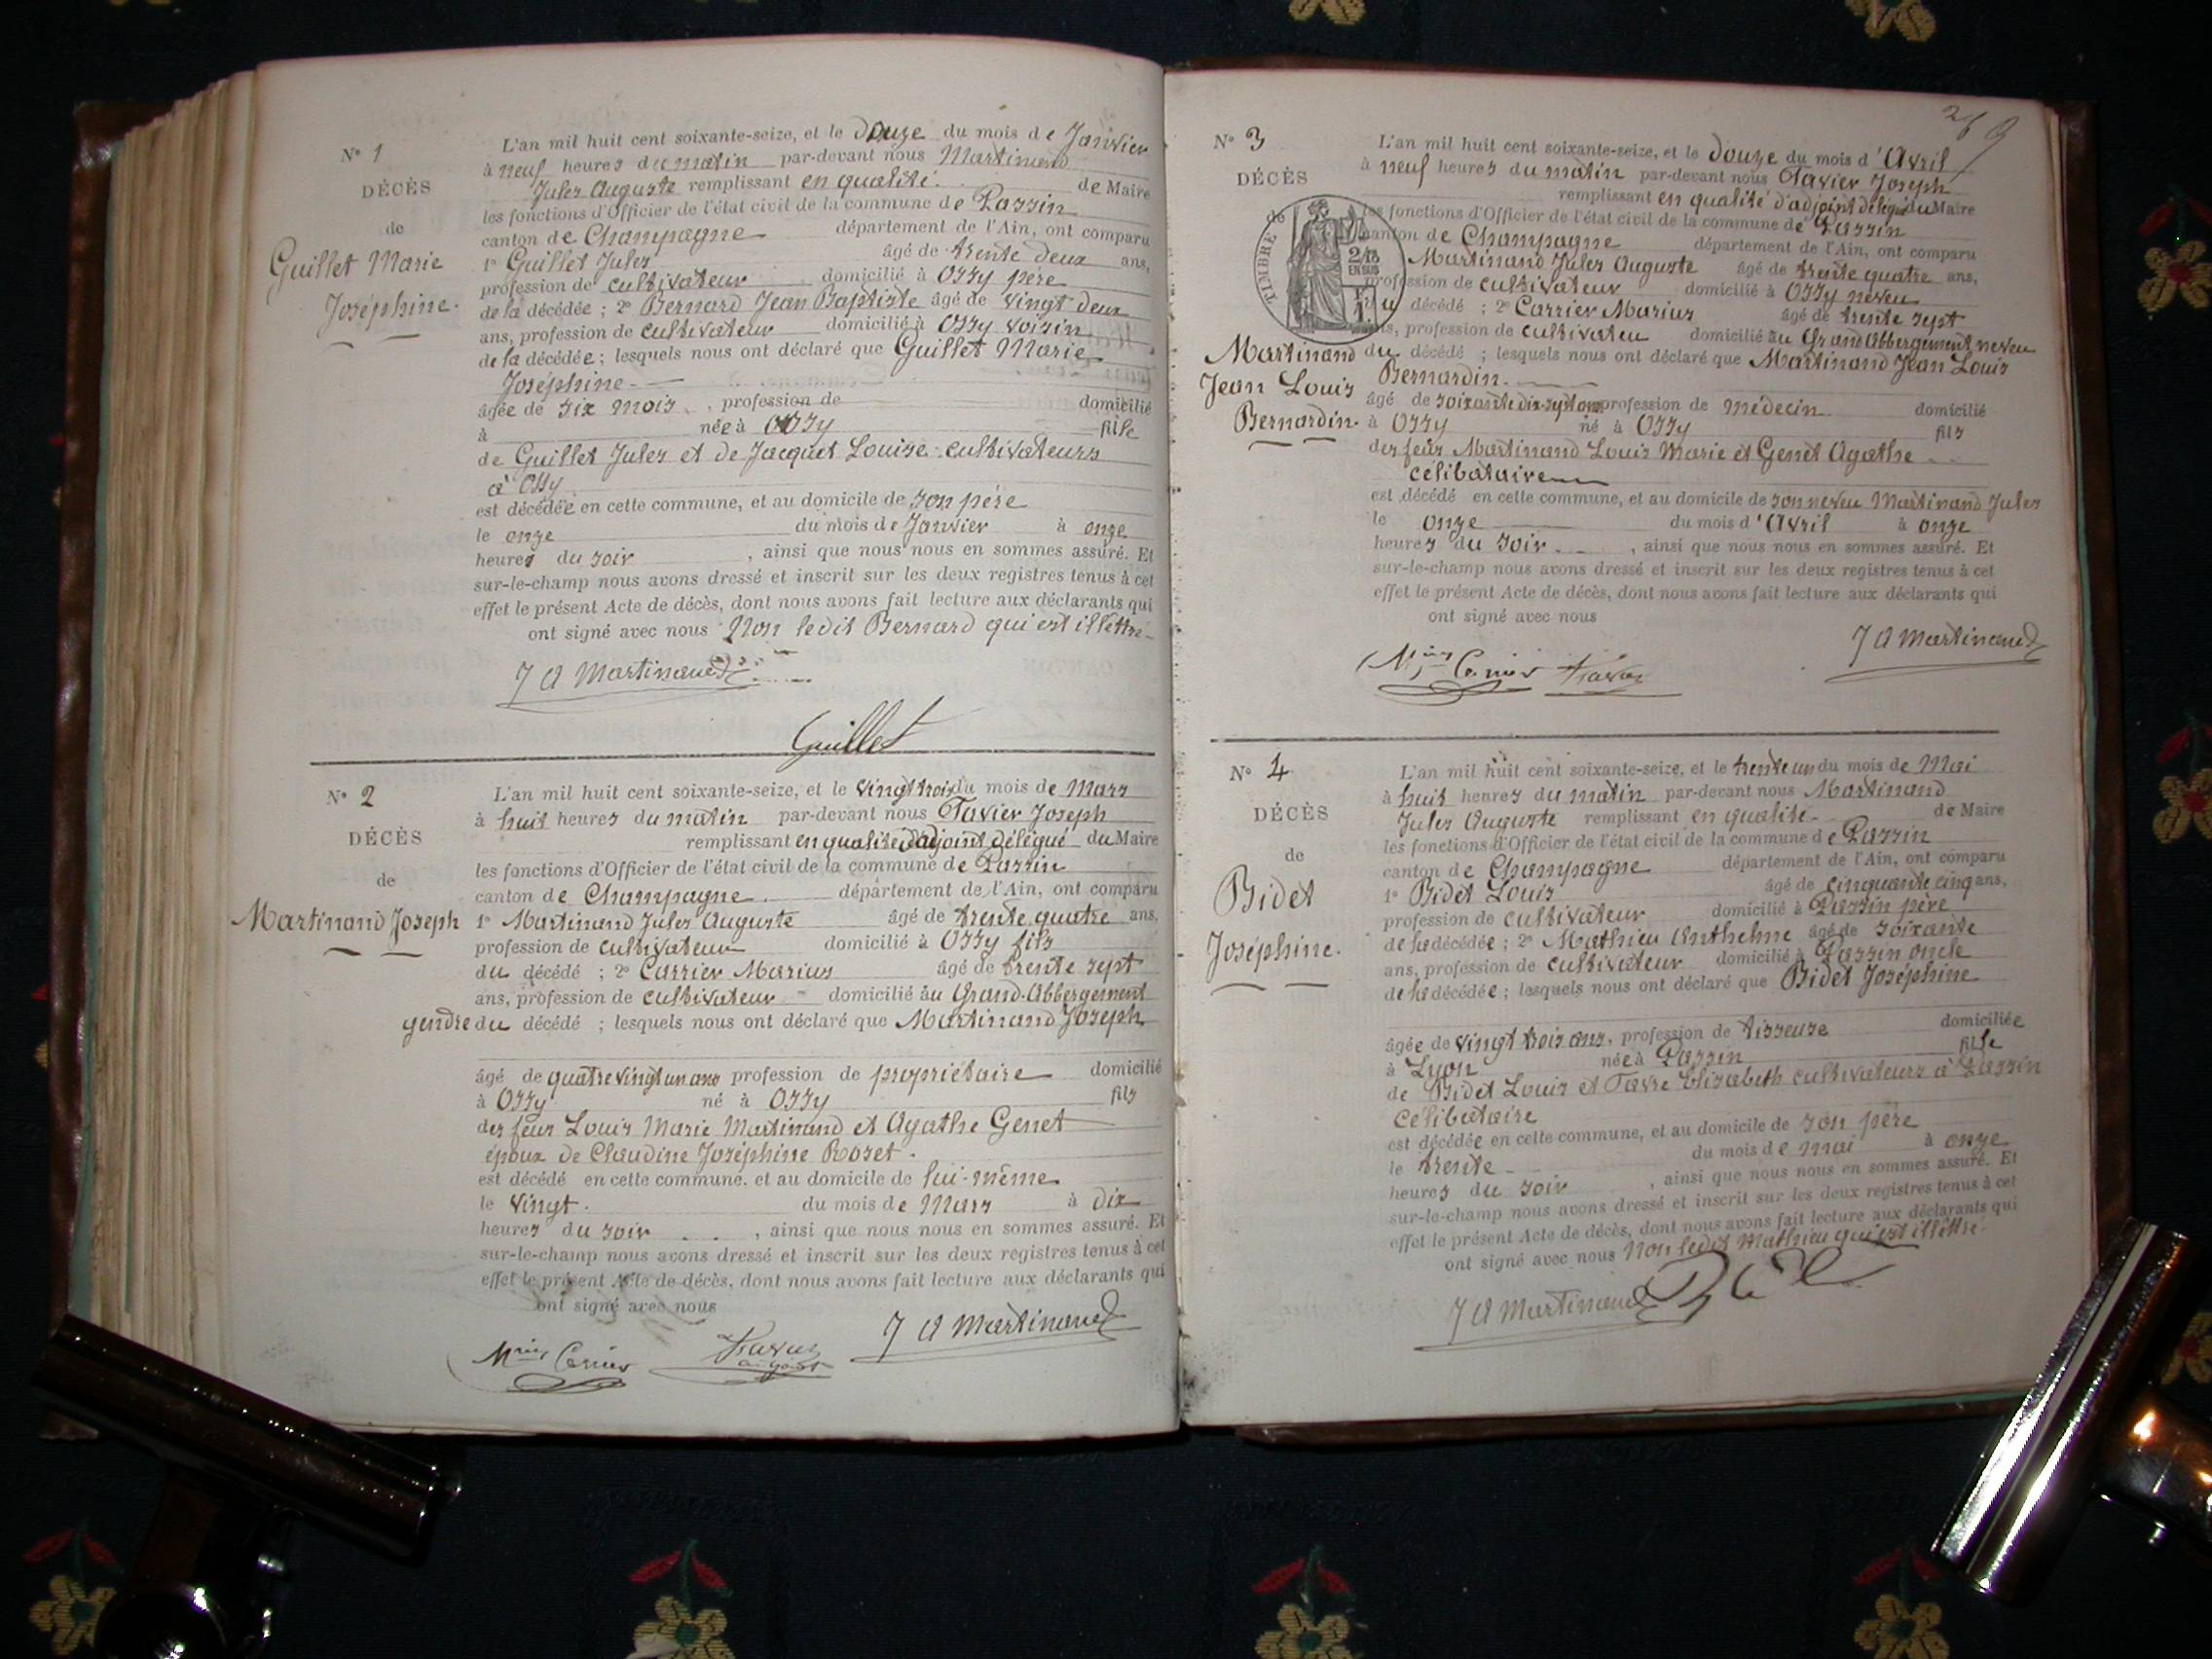 N° 1
DÉCÈS
de
Guillet Marie
Joséphine.
L'an mil huit cent soixante-seize, et le douze du mois de Janvier
à neuf heures du matin par-devant nous Martinand
Jules Auguste remplissant en qualité. de Maire
les fonctions d'Officier de l'état civil de la commune de Passin
canton de Champagne département de l'Ain, ont comparu
1° Guillet Jules âgé de trente deux ans,
profession de cultivateur domicilié à Ossy père
de la décédée ; 2° Bernard Jean Baptiste âgé de vingt deux
ans, profession de cultivateur domicilié à Ossy voisin
de la décédée ; lesquels nous ont déclaré que Guillet Marie
Joséphine
âgée de six mois, profession de domicilié
à née à Ossy fille
de Guillet Jules et de Jacquet Louise cultivateurs
à Ossy
est décédée en cette commune, et au domicile de son père
le onze du mois de Janvier à onze
heures du soir, ainsi que nous nous en sommes assuré. Et
sur-le-champ nous avons dressé et inscrit sur les deux registres tenus à cet
effet le présent Acte de décès, dont nous avons fait lecture aux déclarants qui
ont signé avec nous Non ledit Bernard qui est illettré
J A Martinand
Guillet
N° 2
DÉCÈS
de
Martinand Joseph
L'an mil huit cent soixante-seize, et le vingt trois du mois de Mars
à huit heures du matin par-devant nous Tavier Joseph
remplissant en qualité d'adjoint délégué du Maire
les fonctions d'Officier de l'état civil de la commune de Passin
canton de Champagne département de l'Ain, ont comparu
1° Martinand Jules Auguste âgé de trente quatre ans,
profession de cultivateur domicilié à Ossy fils
du décédé ; 2° Carrier Marius âgé de trente sept
ans, profession de cultivateur domicilié au Grand-Abbergement
gendre du décédé ; lesquels nous ont déclaré que Martinand Joseph
âgé de quatre vingt un ans profession de propriétaire domicilié
à Ossy né à Ossy fils
des feus Louis Marie Martinand et Agathe Genet
époux de Claudine Joséphine Rozet.
est décédé en cette commune. et au domicile de lui-même
le vingt. du mois de Mars à dix
heures du soir, ainsi que nous nous en sommes assuré. Et
sur-le-champ nous avons dressé et inscrit sur les deux registres tenus à cet
effet le présent Acte de décès, dont nous avons fait lecture aux déclarants qui
ont signé avec nous
J A Martinand
Mius Carrier
269
N° 3
DÉCÈS
de
TIMBRE
2/10
EN SUS
Martinand
Jean Louis
Bernardin.
L'an mil huit cent soixante-seize, et le douze du mois d'Avril
à neuf heures du matin par-devant nous Tavier Joseph
remplissant en qualité d'adjoint délégué du Maire
les fonctions d'Officier de l'état civil de la commune de Passin
canton de Champagne département de l'Ain, ont comparu
Martinand Jules Auguste âgé de trente quatre ans,
profession de cultivateur domicilié à Ossy neveu
du décédé ; 2° Carrier Marius âgé de trente sept
ans, profession de cultivateu domicilié au Grand Abbergement neveu
du décédé ; lesquels nous ont déclaré que Martinand Jean Louis
Bernardin.
âgé de soixante dix-sept ans profession de médecin domicilié
à Ossy né à Ossy fils
des feus Martinand Louis Marie et Genet Agathe
celibataire
est décédé en cette commune, et au domicile de son neveu Martinand Jules
le onze du mois d'Avril à onze
heures du soir, ainsi que nous nous en sommes assuré. Et
sur-le-champ nous avons dressé et inscrit sur les deux registres tenus à cet
effet le présent Acte de décès, dont nous avons fait lecture aux déclarants qui
ont signé avec nous
J A Martinand
Mius Carrier
N° 4
DÉCÈS
de
Bidet
Joséphine.
L'an mil huit cent soixante-seize, et le trente un du mois de Mai
à huit heures du matin par-devant nous Martinand
Jules Auguste remplissant en qualité. de Maire
les fonctions d'Officier de l'état civil de la commune de Passin
canton de Champagne département de l'Ain, ont comparu
1° Bidet Louis âgé de cinquante cinq ans,
profession de cultivateur domicilié à Passin père
de la décédée ; 2° Mathieu Anthelme âgé de soixante
ans, profession de cultivateur domicilié à Passin oncle
de la décédée ; lesquels nous ont déclaré que Bidet Joséphine
âgée de vingt trois ans, profession de tisseuse domiciliée
à Lyon née à Passin fille
de Bidet Louis et Favre Elisabeth cultivateurs à Passin
Célibataire
est décédée en cette commune, et au domicile de son père
le trente du mois de mai à onze
heures du soir, ainsi que nous nous en sommes assuré. Et
sur-le-champ nous avons dressé et inscrit sur les deux registres tenus à cet
effet le présent Acte de décès, dont nous avons fait lecture aux déclarants qui
ont signé avec nous Non ledit Mathieu qui est illettré.
J A Martinand